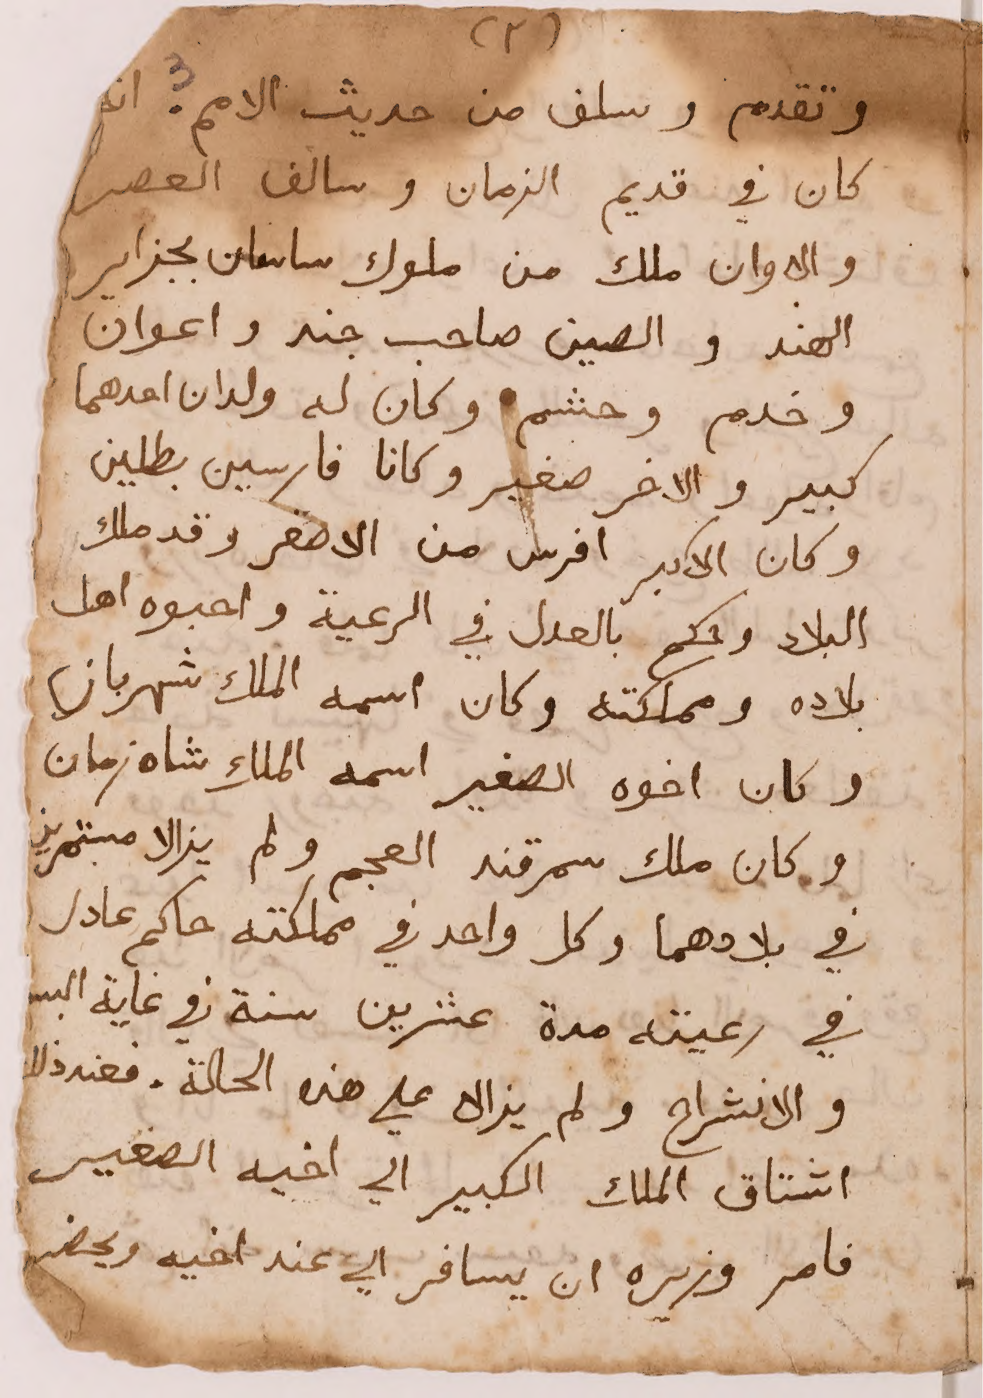 (٢)
وتقدم و سلف من حديث الامم ? انه
كان في قديم الزمان و سالف العصر
و الاوان ملك من ملوك ساسان بجزاير
الهند و الصين صاحب جند و اعوان
و خدم و حشم وكان له ولدان احدهما
كبير و الاخر صغير وكانا فارسين بطلين
وكان الاكبر افرس من الاصغر وقد ملك
البلاد وحكم بالعدل في الرعية و احبوه اهل
بلاده و مملكته وكان اسمه الملك شهرباز
و كان اخوه الصغير اسمه الملك شاه زمان
و كان ملك سمرقند العجم و لم يزالا مستمرين
في بلادهما وكل واحد في مملكته حاكم عادل
في رعيته مدة عشرين سنة في غاية البس
و الانشراح و لم يزالا علي هذه الحالة . فعند ذلك
اشتاق الملك الكبير الي اخيه الصغير
فامر وزيره ان يسافر الي عند اخيه ويحضر